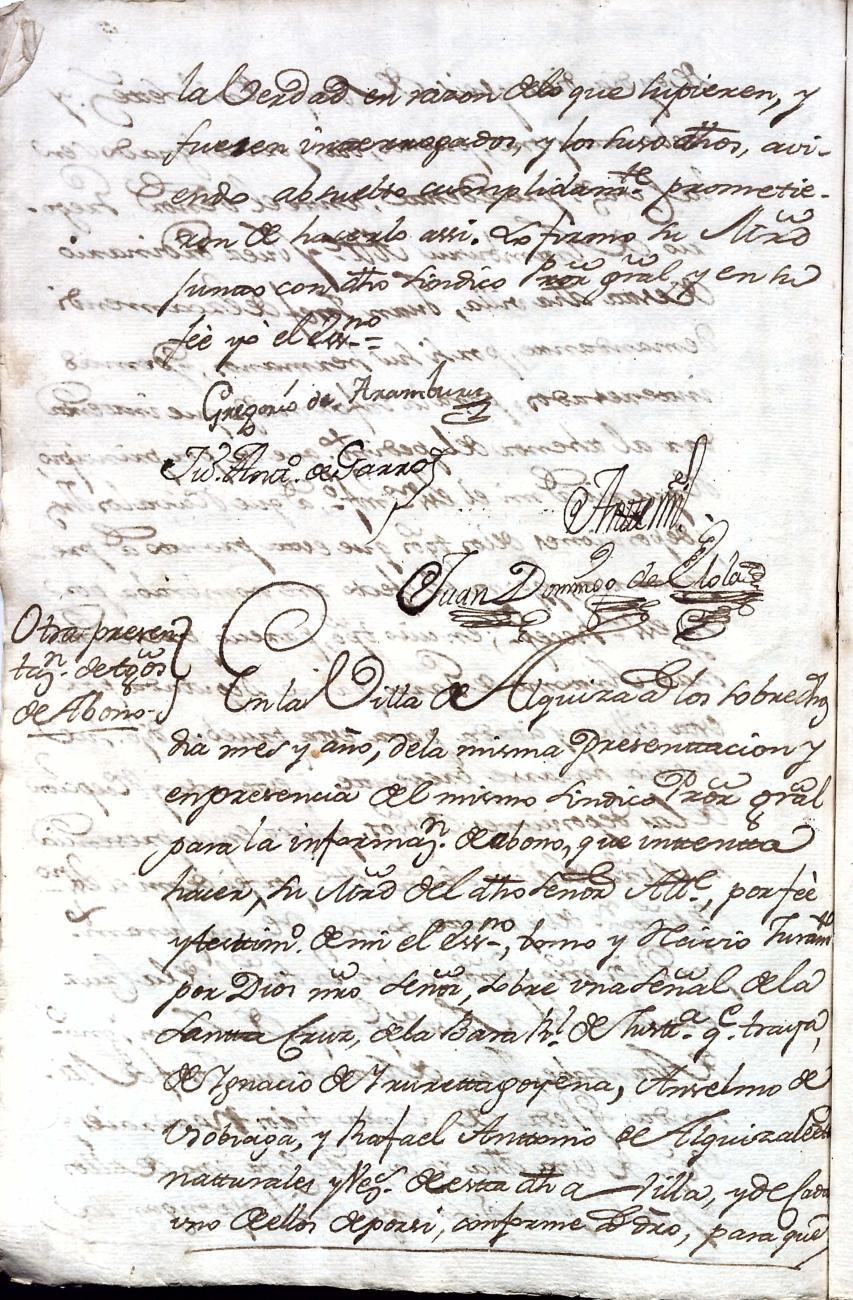 la Verdad en razon delo que supieren, y
fueren interrogados, y los suso dhos, avi-
endo absuelto cumplidamte. prometie-
ron de hacerlo assi. Lo firmo su Mrd
junto con dho Sindico Pror gral y en su
fèe yò el Essno =
Gregorio de Aramburu
Antº. de Garro
Antemi
Juan Domingo de Elola
Otra presen
tazn. de tgos
de Abono-
En la Villa de Alquiza a los sobredhos
dia mes y año, dela misma Presenttacion y
enpresencia del mismo Sindico Pror gral
para la informazn. de abono, que intentta
hacer, su Mrd del dho Señor Alle., por fèe
y testimº. de mi el Essno, tomo y Recivio Juramto
por Dios nro Señor, sobre una Señal de la
Santta Cruz, dela Bara Rl. de Justta. qe. traya,
de Ygnacio de Yrurettagoyena, Anselmo de
y Rafael Anttonio de Alquizalete
natturales y Vezs. de estta dha Villa, y de Cada
uno dellos deporsi, conforme a dro, para que